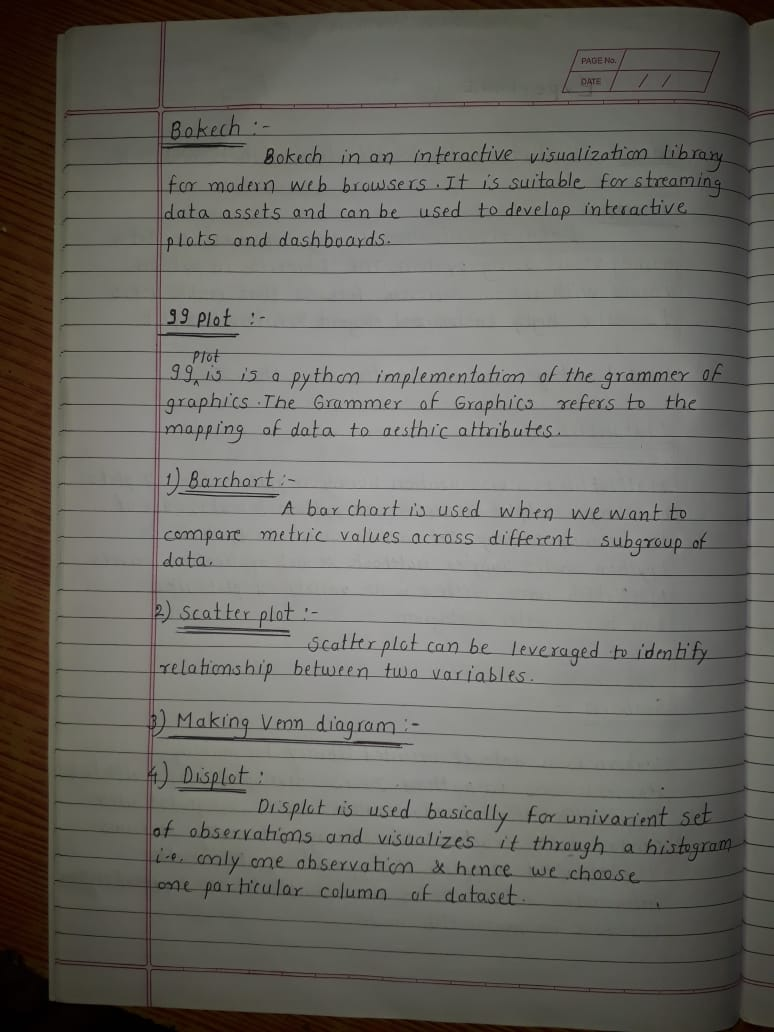 PAGE No.
DATE / /
Bokech :-
Bokech in an interactive visualization library
for modern web browsers. It is suitable for streaming
data assets and can be used to develop interactive
plots and dashboards.
gg plot :-
plot
gg^ is is a python implementation of the grammer of
graphics. The Grammer of Graphics refers to the
mapping of data to aesthic attributes.
1) Barchart :-
A bar chart is used when we want to
compare metric values across different subgroup of
data.
2) Scatter plot :-
Scatter plot can be leveraged to identify
relationship between two variables.
3) Making Venn diagram :-
4) Displot :
Displot is used basically for univarient set
of observations and visualizes it through a histogram
i.e. only one observation & hence we choose
one particular column of dataset.